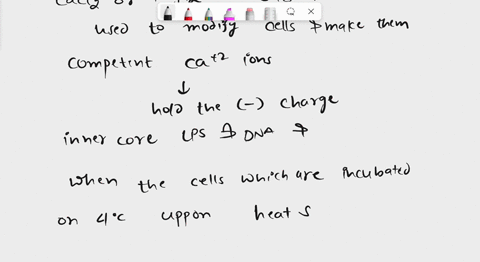 used to modify cells & make them
competint ca+2 ions
↓
hold the (-) charge
inner core LPS & DNA &
when the cells which are incubated
on 4°c uppon heat s